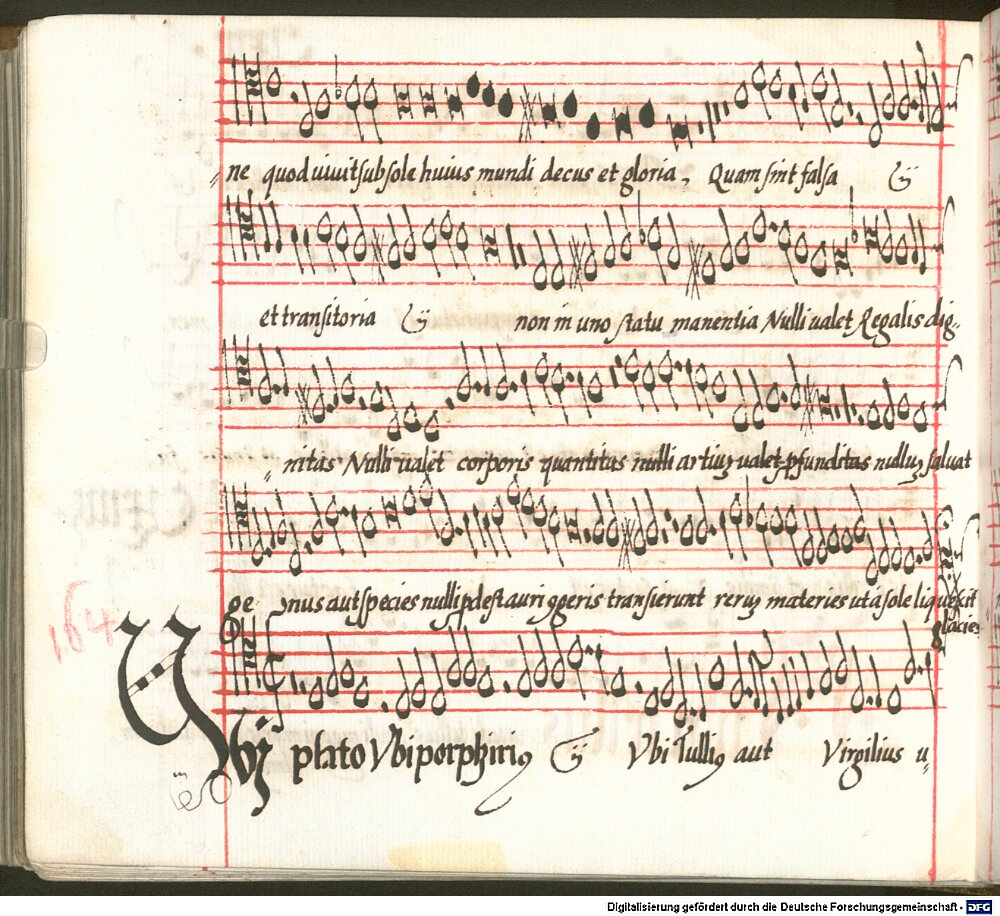 ne quod uiuit sub sole huius mundi decus et gloria, Quam sint falsa ij
et transitoria ij non in uno statu manentia Nulli ualet Regalis dig-
nitas Nulli ualet corporis quantitas nulli artiuȝ ualet pfunditas nulluȝ saluat
ge nus aut species nulli pdest auri ggeris transierunt reruȝ materies ut a sole liquescit
glacies
164
Vbi plato Vbi porphirius ij Vbi Tullius aut Virgilius u-
Digitalisierung gefördert durch die Deutsche Forschungsgemeinschaft - DFG